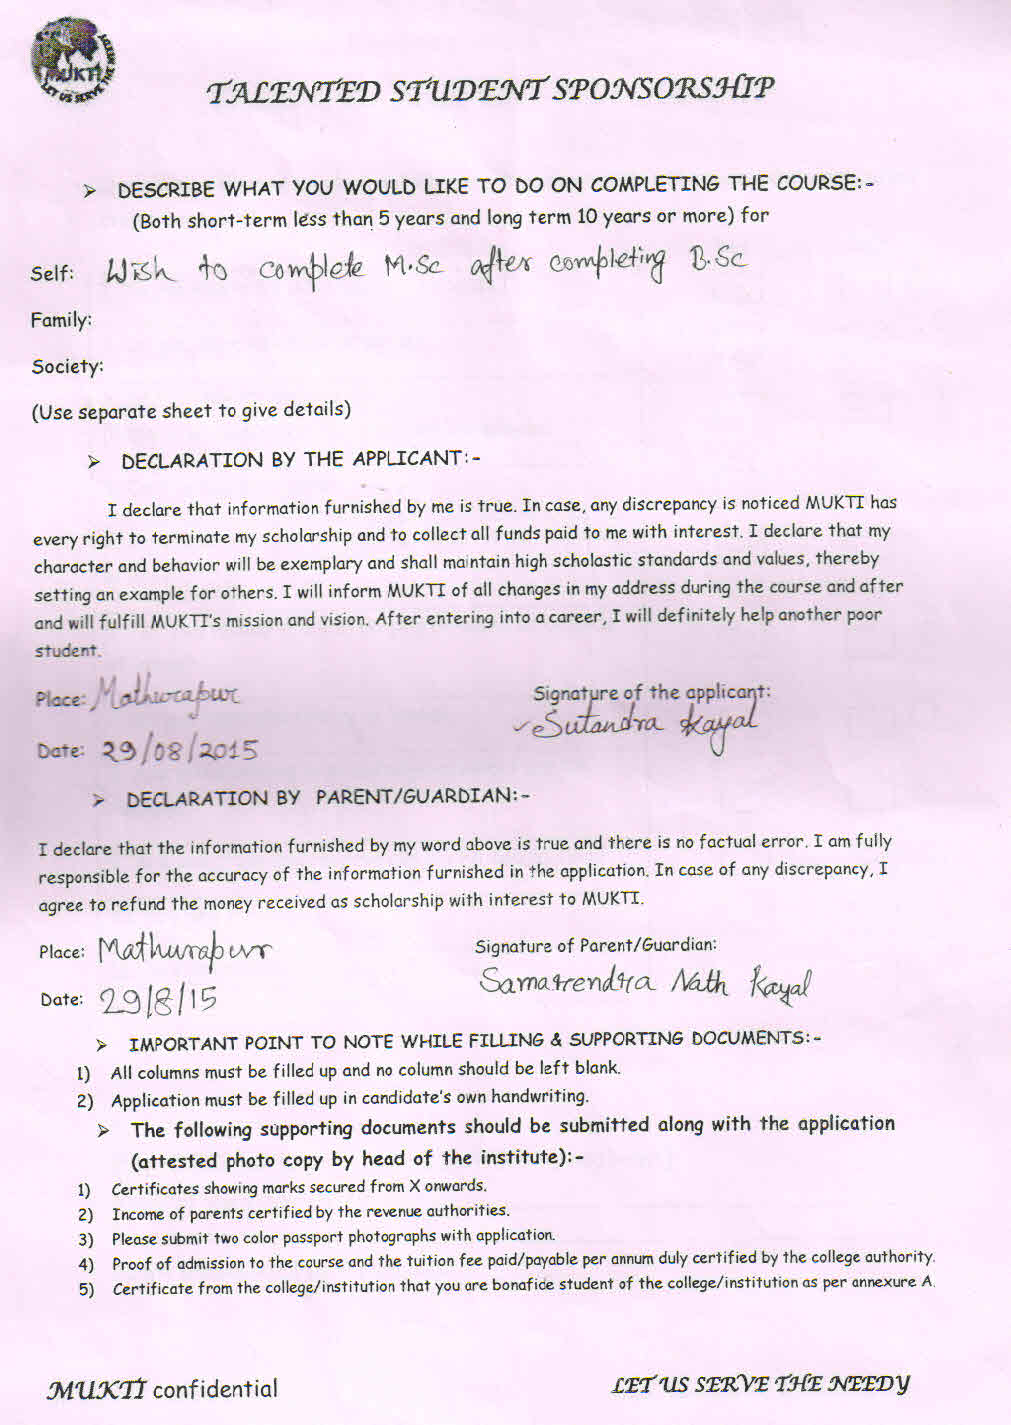 MUKTI
LET US SERVE THE NEEDY
TALENTED STUDENT SPONSORSHIP
➢ DESCRIBE WHAT YOU WOULD LIKE TO DO ON COMPLETING THE COURSE:-
(Both short-term less than 5 years and long term 10 years or more) for
Self: Wish to complete M.Sc after completing B.Sc
Family:
Society:
(Use separate sheet to give details)
➢ DECLARATION BY THE APPLICANT:-
I declare that information furnished by me is true. In case, any discrepancy is noticed MUKTI has
every right to terminate my scholarship and to collect all funds paid to me with interest. I declare that my
character and behavior will be exemplary and shall maintain high scholastic standards and values, thereby
setting an example for others. I will inform MUKTI of all changes in my address during the course and after
and will fulfill MUKTI's mission and vision. After entering into a career, I will definitely help another poor
student.
Place: Mathurapur
Signature of the applicant:
Sutandra Kayal
Date: 29/08/2015
➢ DECLARATION BY PARENT/GUARDIAN:-
I declare that the information furnished by my word above is true and there is no factual error. I am fully
responsible for the accuracy of the information furnished in the application. In case of any discrepancy, I
agree to refund the money received as scholarship with interest to MUKTI.
Place: Mathurapur
Signature of Parent/Guardian:
Samarendra Nath Kayal
Date: 29/8/15
➢ IMPORTANT POINT TO NOTE WHILE FILLING & SUPPORTING DOCUMENTS:-
1) All columns must be filled up and no column should be left blank.
2) Application must be filled up in candidate's own handwriting.
➢ The following supporting documents should be submitted along with the application
(attested photo copy by head of the institute):-
1) Certificates showing marks secured from X onwards.
2) Income of parents certified by the revenue authorities.
3) Please submit two color passport photographs with application.
4) Proof of admission to the course and the tuition fee paid/payable per annum duly certified by the college authority.
5) Certificate from the college/institution that you are bonafide student of the college/institution as per annexure A.
MUKTI confidential
LET US SERVE THE NEEDY